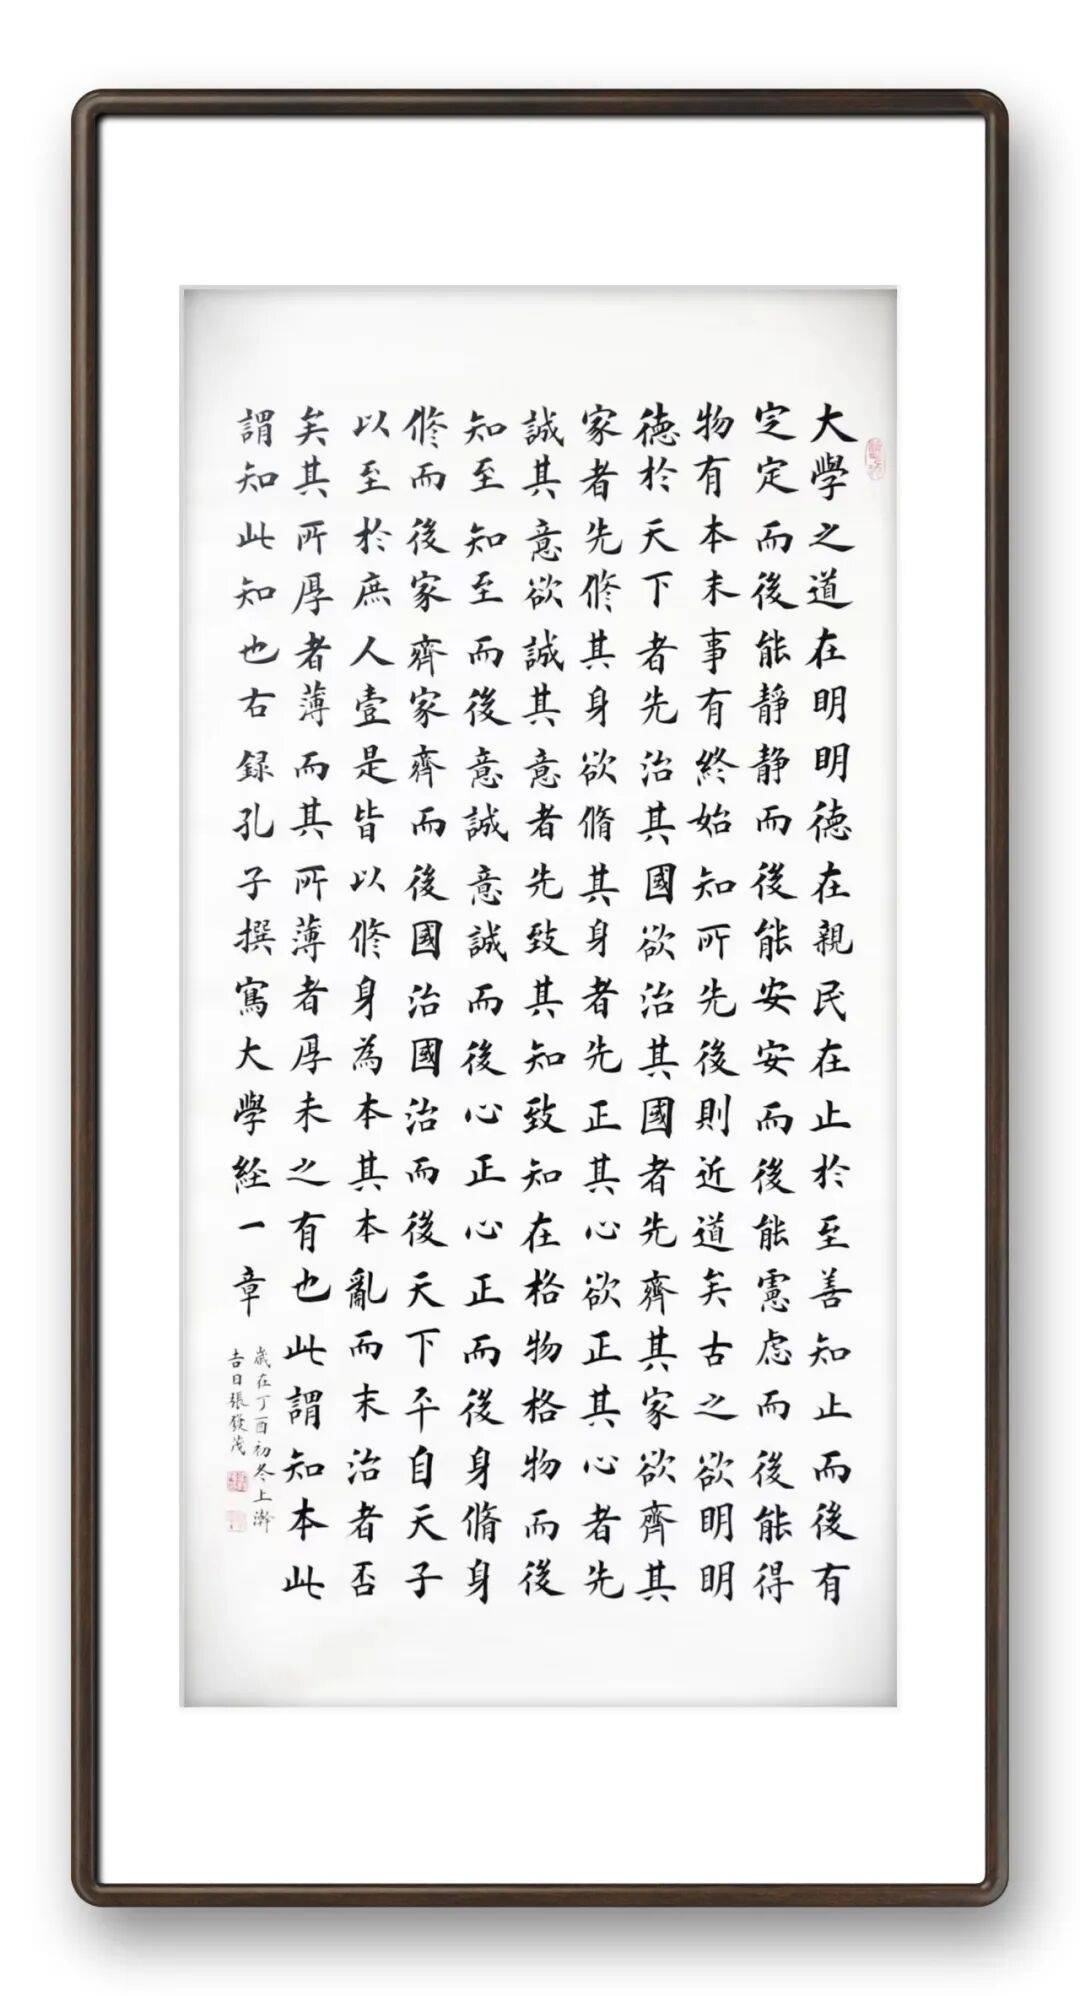 大學之道在明明德在親民在止於至善知止而後有
定定而後能靜靜而後能安安而後能慮慮而後能得
物有本末事有終始知所先後則近道矣古之欲明明
德於天下者先治其國欲治其國者先齊其家欲齊其
家者先修其身欲脩其身者先正其心欲正其心者先
誠其意欲誠其意者先致其知致知在格物格物而後
知至知至而後意誠意誠而後心正心正而後身脩身
修而後家齊家齊而後國治國治而後天下平自天子
以至於庶人壹是皆以修身為本其本亂而末治者否
矣其所厚者薄而其所薄者厚未之有也此謂知本此
謂知此知也右録孔子撰寫大學経一章
歲在丁酉初冬上澣
吉日張發茂